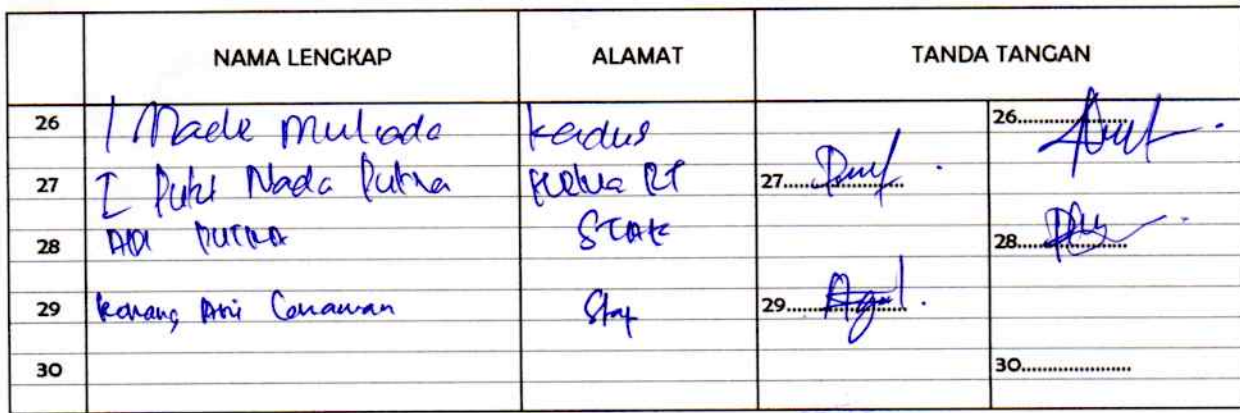 NAMA LENGKAP ALAMAT TANDA TANGAN
26 I Made Muliada Kadus 26.....................
27 I Putu Nada Putra Ketua RT 27.....................
28 ADI PUTRA STAF 28.....................
29 Karang Ari Staf 29.....................
30 30.....................